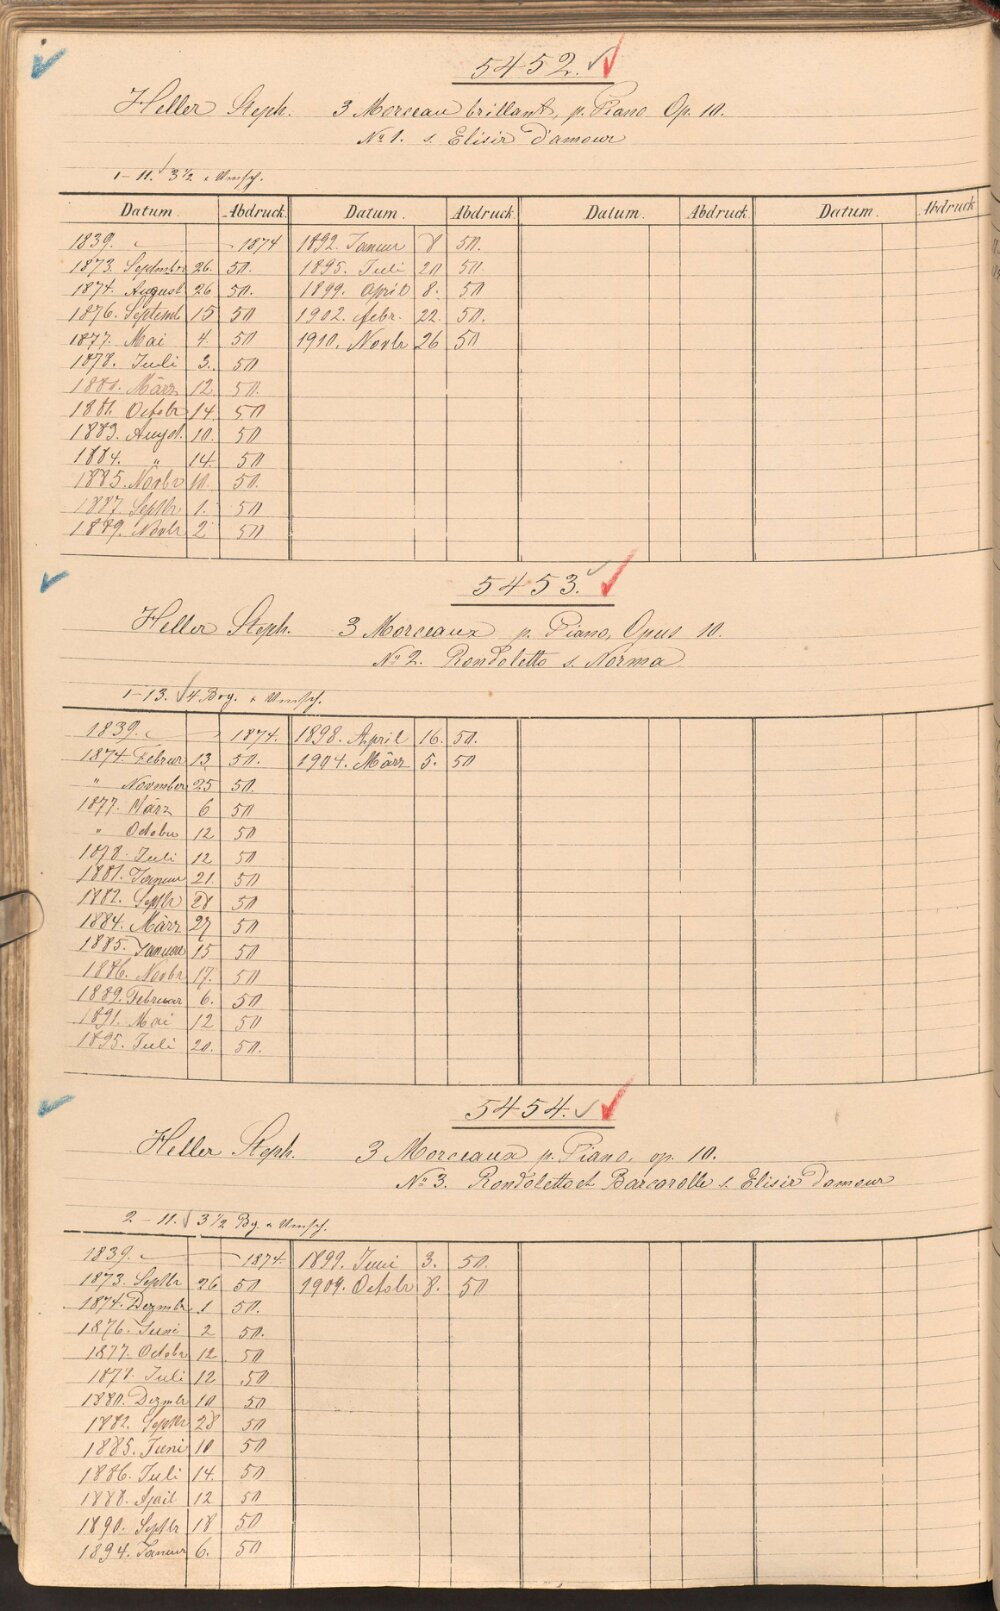 5452.
Heller Steph. 3 Morceau brillant, p. Piano Op. 10.
No 1. s. Elisir d'amour
1-11. 3 1/2 " Umsch.
Datum. Abdruck. Datum. Abdruck. Datum. Abdruck. Datum. Abdruck
1839. 1874 1892. Januar 8 50.
1873. September 26. 50. 1895. Juli 20 50.
1874. August 26 50. 1899. April 8. 50
1876. Septemb 15 50 1902. Febr. 22. 50.
1877. Mai 4. 50 1910. Novbr 26 50
1878. Juli 3. 50
1880. März 12 50.
1881. Octobr 14. 50
1883. August. 10. 50
1884. " 14. 50
1885. Novbr 10. 50.
1887. Septbr 1. 50
1889. Novbr 2 50
5453.
Heller Steph. 3 Morceaux p. Piano, Opus 10.
No 2. Rondoletto s. Norma
1-13. 4 Bog. " Umsch.
1839. 1874. 1898. April 16. 50.
1874 Februar 13 50. 1904. März 5. 50
" November 25 50.
1877. März 6 50
" October 12 50
1878. Juli 12 50
1881. Januar 21. 50
1882. Septbr 28 50
1884. März 27 50
1885. Januar 15 50
1886. Novbr 17. 50
1889. Februar 6. 50
1891. Mai 12 50
1895. Juli 20. 50.
5454.
Heller Steph. 3 Morceaux p. Piano, op. 10.
No 3. Rondoletto et Barcarolle s. Elisir d'amour
2-11. 3 1/2 Bg. " Umsch.
1839. 1874. 1899. Juni 3. 50.
1873. Septbr 26 50 1909. Octobr 8. 50
1874. Dezmbr 1 50.
1876. Juni 2 50.
1877. Octobr 12 50
1878. Juli 12 50
1880. Dezmbr 10 50
1882. Septbr 28 50
1885. Juni 10 50
1886. Juli 14. 50
1888. April 12 50
1890. Septbr 18 50
1894. Januar 6. 50